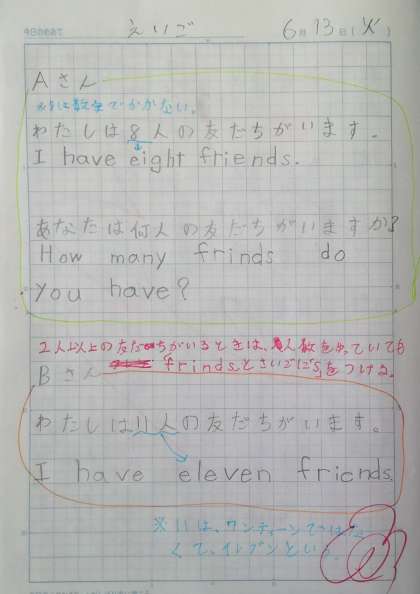 今日のめあて えいご 6月13日(火)
Aさん
※8は数字でかかない。
わたしは8人の友だちがいます。
I have eight friends.
あなたは何人の友だちがいますか?
How many frinds do
you have?
2人以上の友だちがいるときは、人数をあっていても
"frindsとさいごに"s"をつける。
Bさん
わたしは11人の友だちがいます。
I have eleven friends.
※11は、ワンティーンではな
くて、イレブンという。